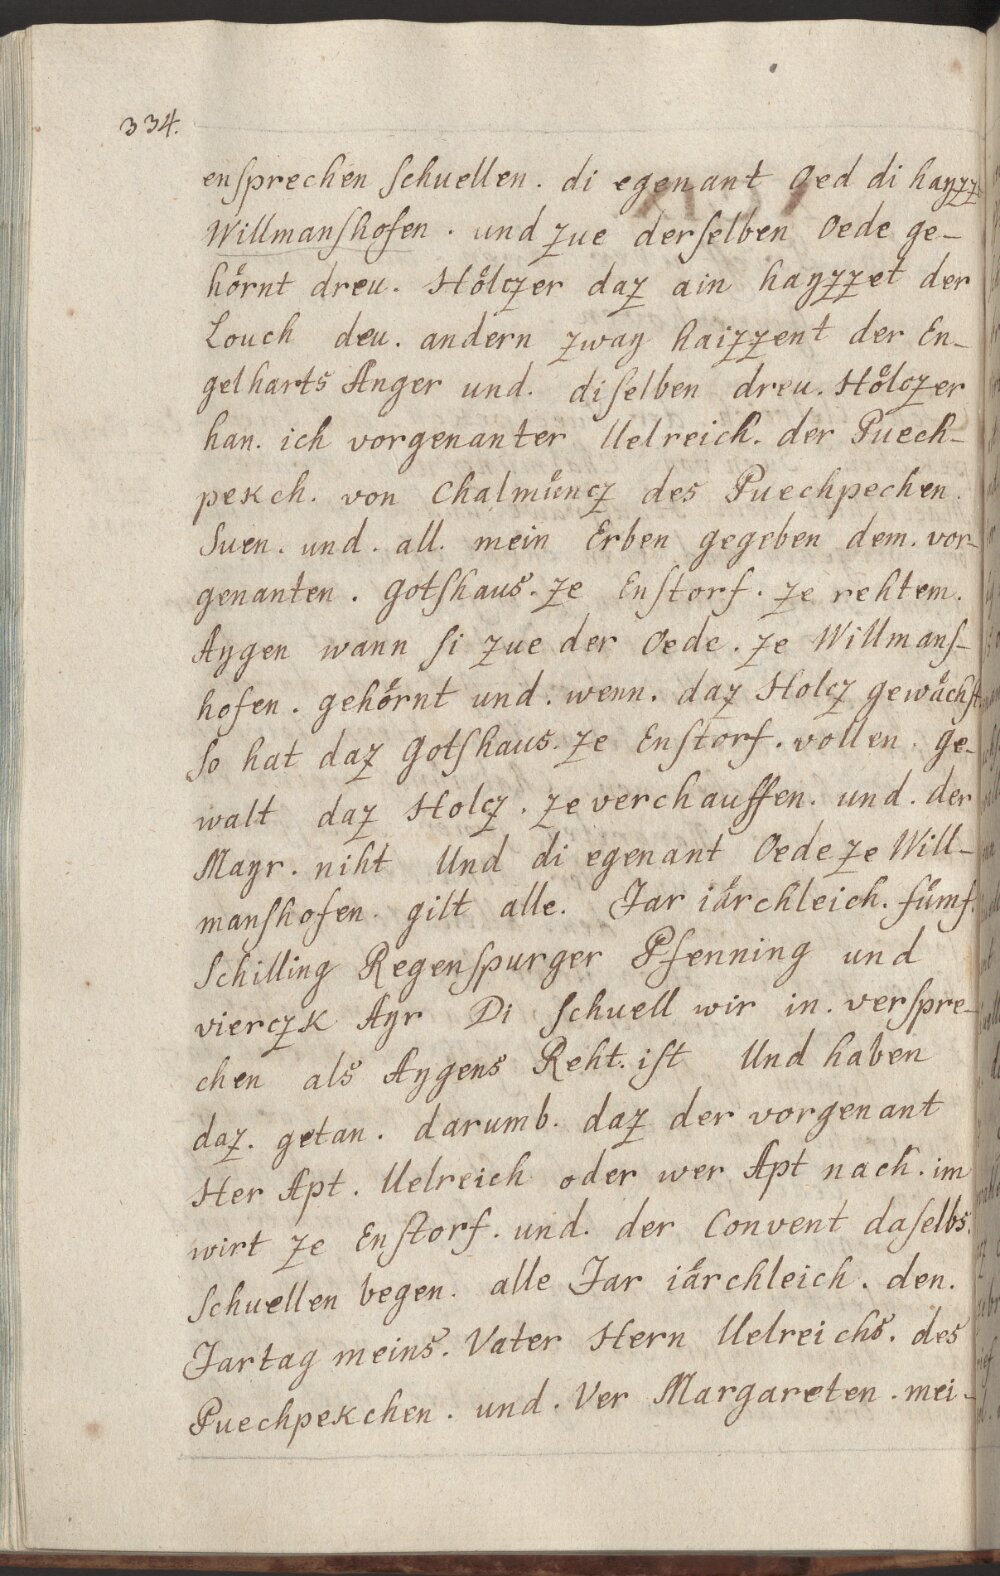 334.
ensprechen schuellen. di egenant Oed di hayzz
Willmanshofen. und zue derselben Oede ge-
hörnt dreu. Hölczer daz ain hayzzet der
Louch deu. andern zway haizzent der En-
gelharts Anger und. diselben dreu. Hölczer
han. ich vorgenanter Uelreich. der Puech-
pekch. von Chalmüncz des Puechpechen.
Suen. und. all. mein Erben gegeben dem. vor-
genanten. Gotshaus. ze Enstorf. ze rehtem.
Aygen wann si zue der Oede. ze Willmans-
hofen. gehörnt und. wenn. daz Holcz gewächst
so hat daz Gotshaus. ze Enstorf. vollen. ge-
walt daz Holcz. ze verchauffen. und. der
Mayr. niht Und di egenant Oede ze Will-
manshofen. gilt alle. Jar iärchleich. fümf.
Schilling Regenspurger Pfenning und
vierczk Ayr Di schuell wir in. verspre-
chen als Aygens Reht. ist Und haben
daz. getan. darumb. daz der vorgenant
Her Apt. Uelreich oder wer Apt nach. im
wirt ze Enstorf. und. der Convent daselbs.
schuellen begen. alle Jar iärchleich. den.
Jartag meins. Vater Hern Uelreichs. des
Puechpekchen. und. Ver Margareten. mei-